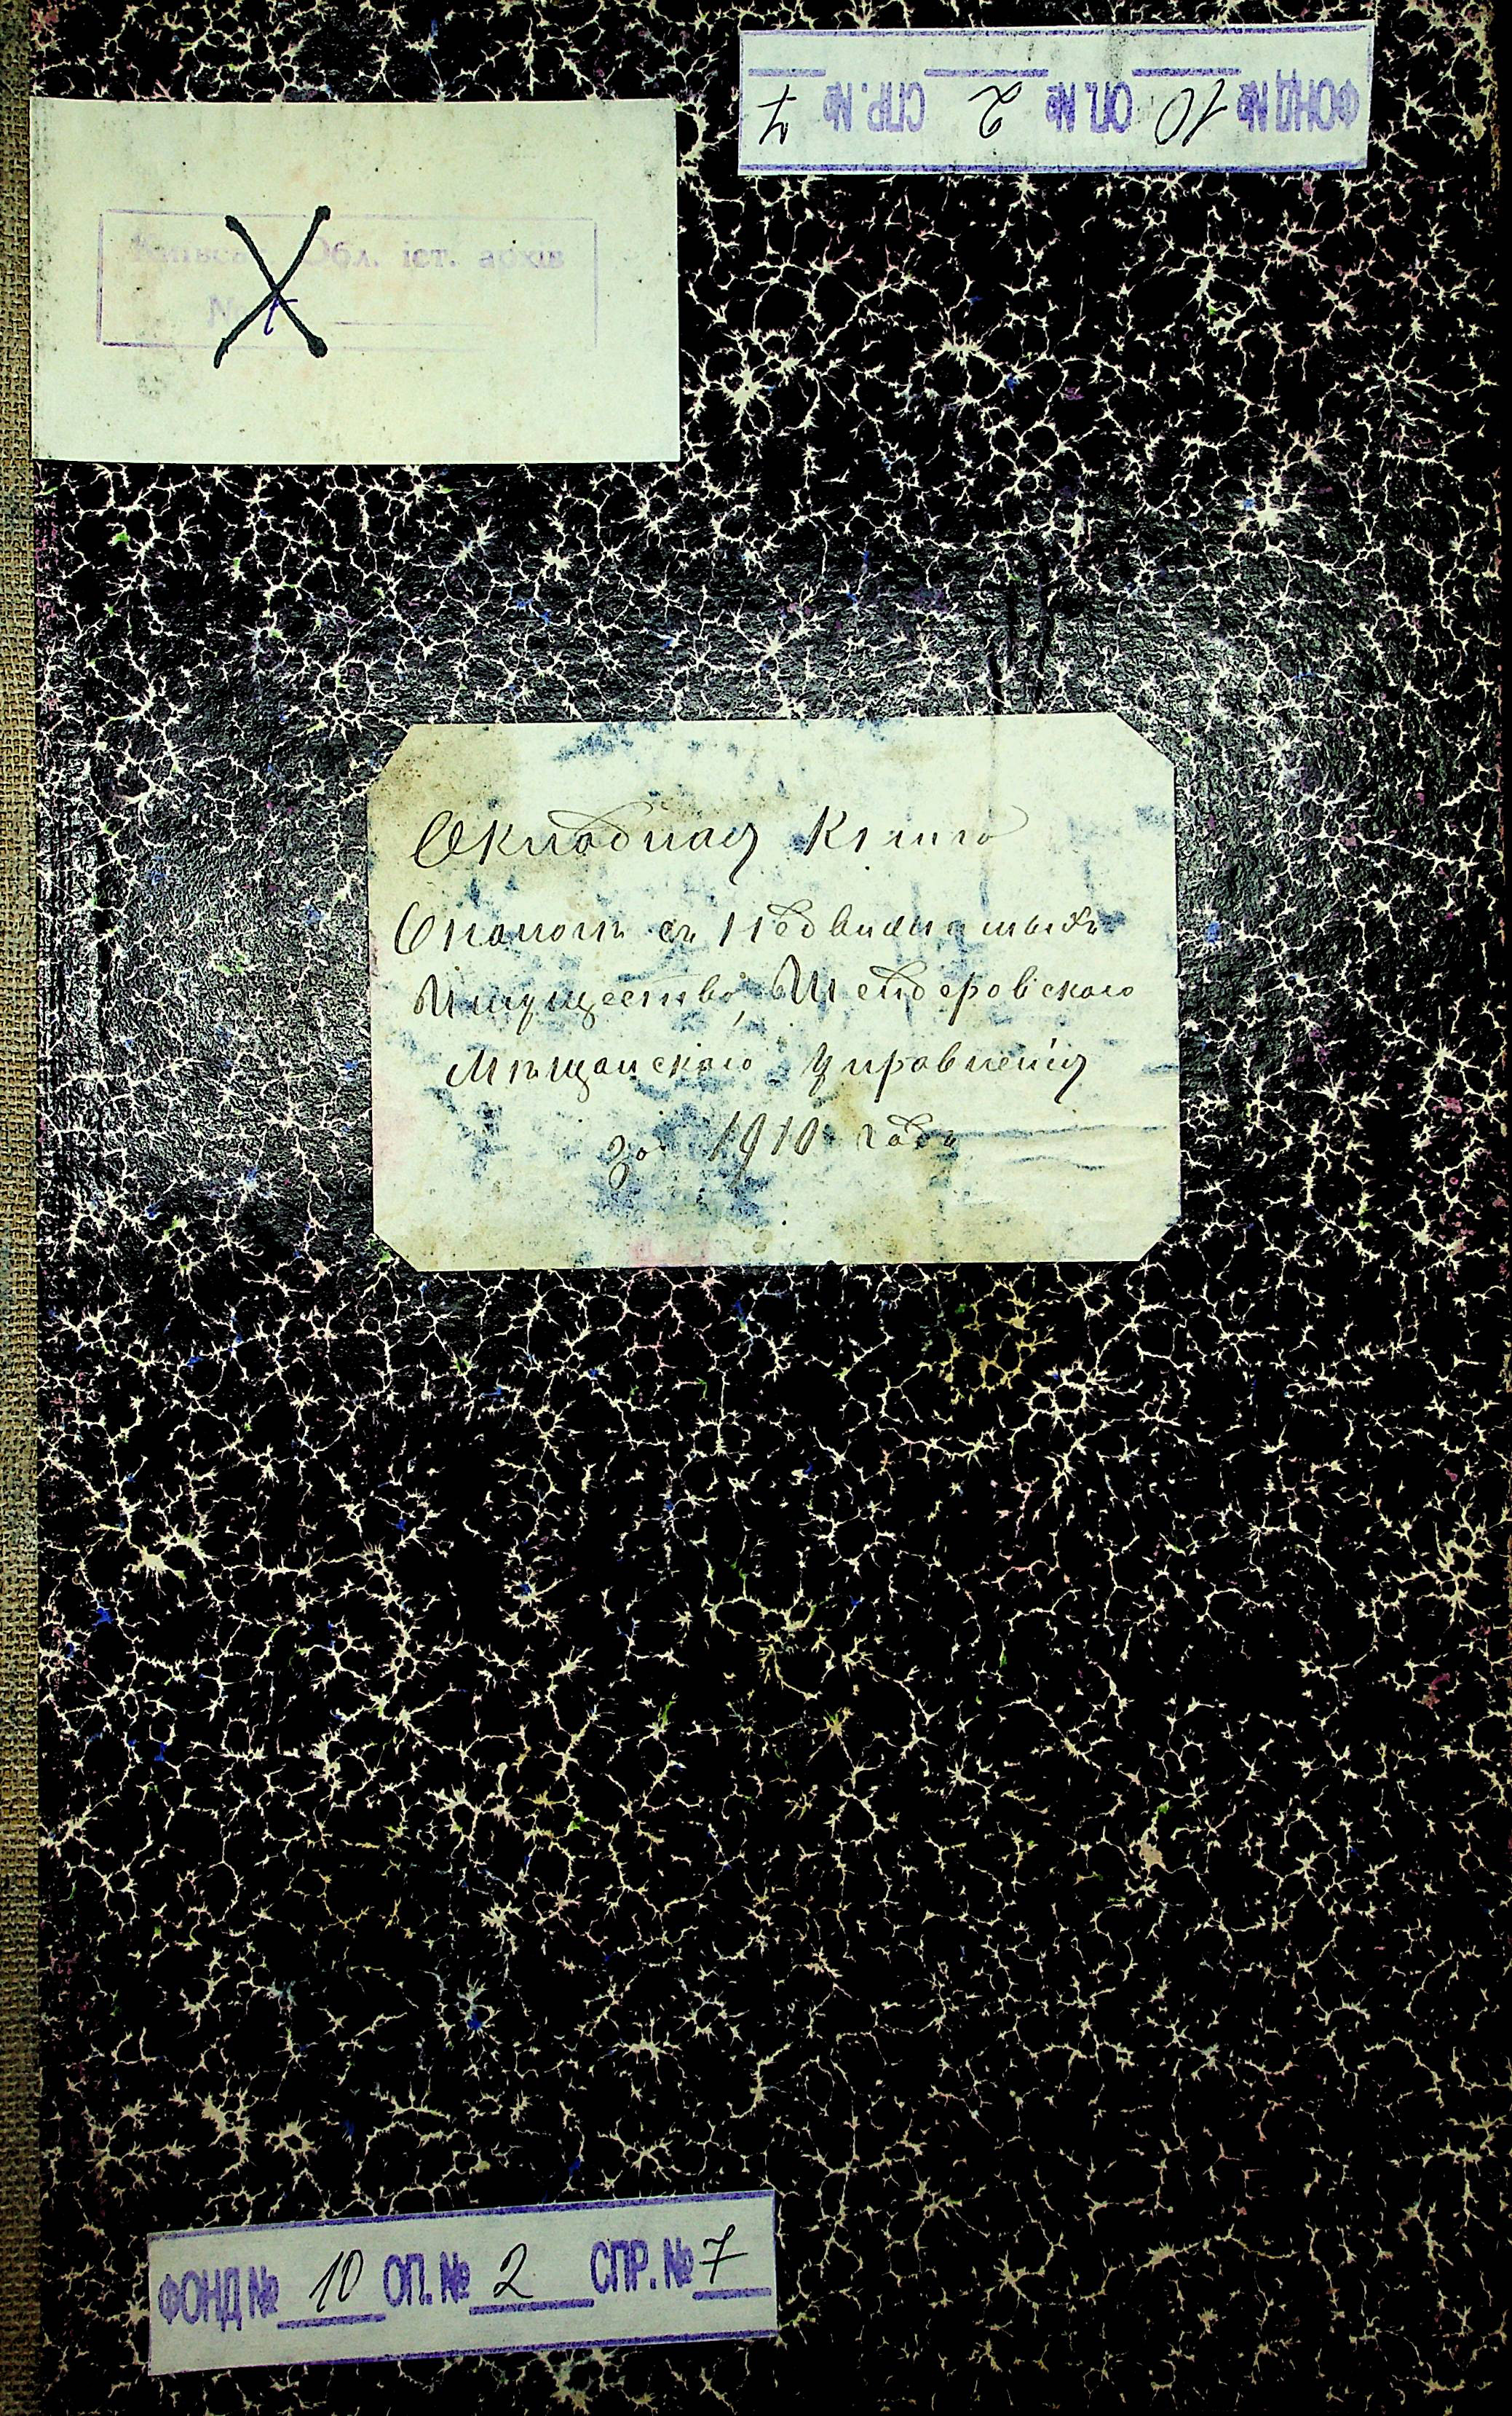 ФОНД № 10 ОП. № 2 СПР. № 7
Обл. іст. архів
№
Окладная Книга
Оналогъ съ Недвижимыхъ
Имуществъ, Шендеровского
Мѣщанского Управленія
за 1910 годъ
ФОНД № 10 ОП. № 2 СПР. № 7